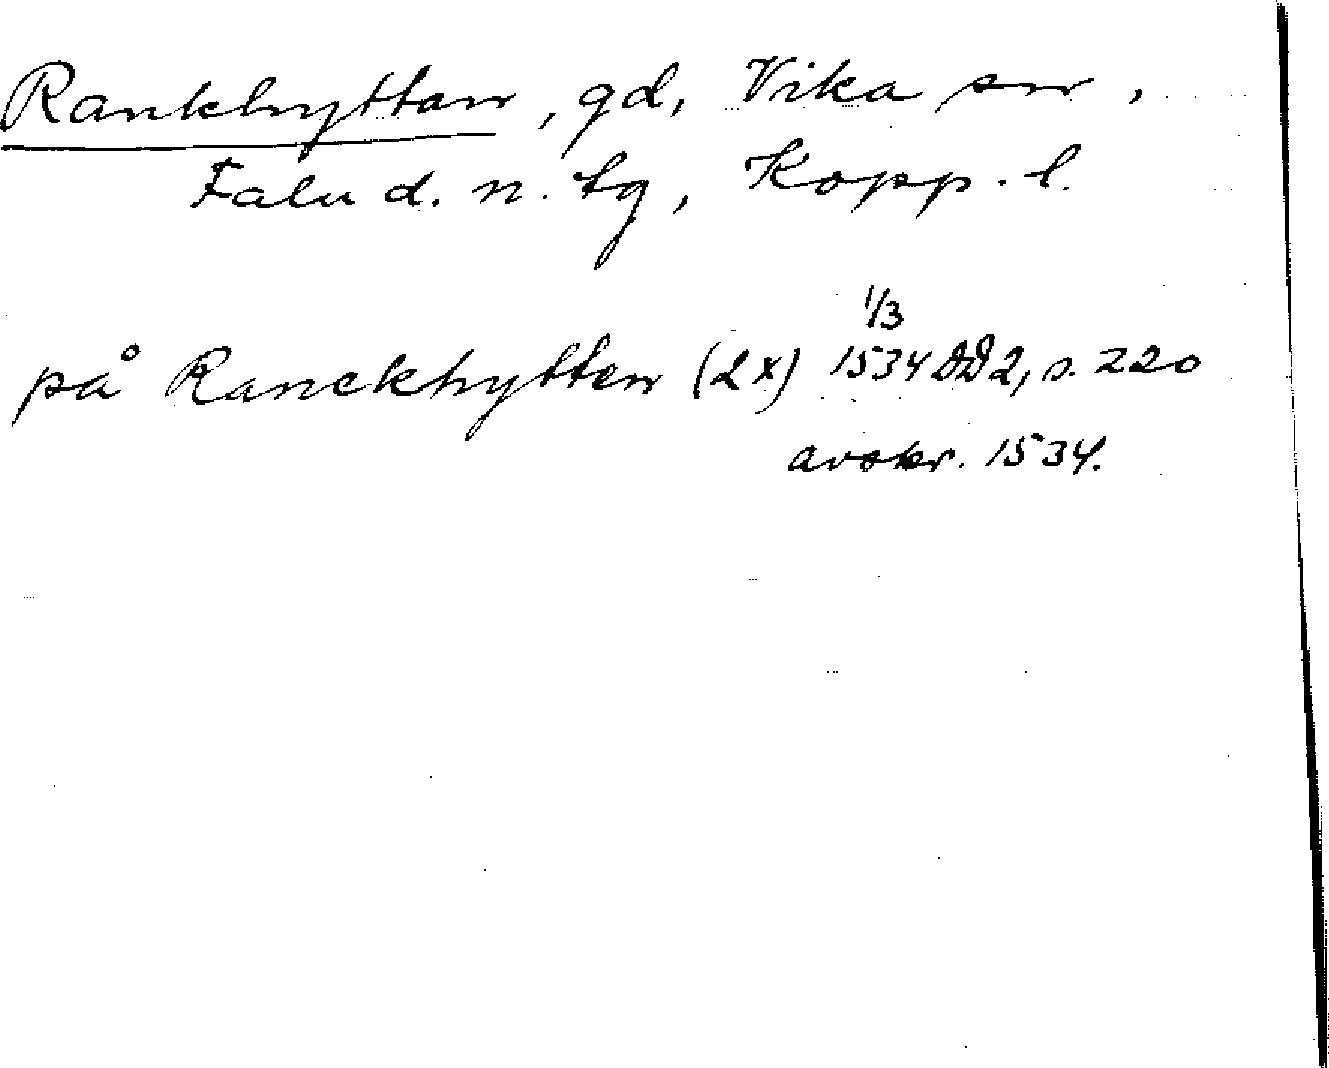 Rankhyttan, gd, Vika sn,
Falu d. n. tg, Kopp. l.
på Ranckhytten (2x) 1/3 1534 DD2, s. 220
avskr. 1534.